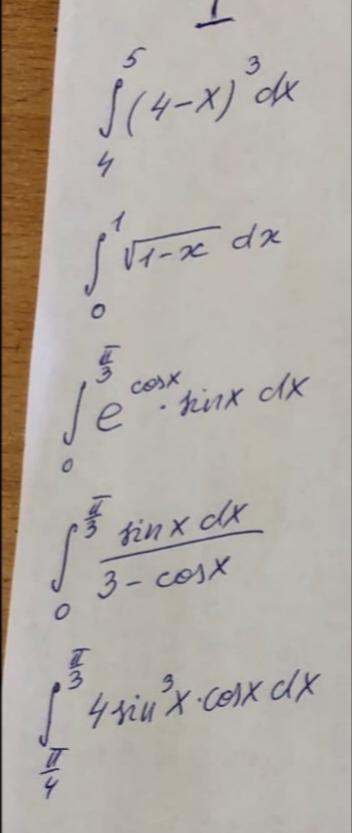 I
∫₄⁵ (4-x)³ dx
∫₀¹ √(1-x) dx
∫₀^(π/3) e^(cosx) · sinx dx
∫₀^(π/3) (sinx dx)/(3-cosx)
∫_(π/4)^(π/3) 4sin³x·cosx dx